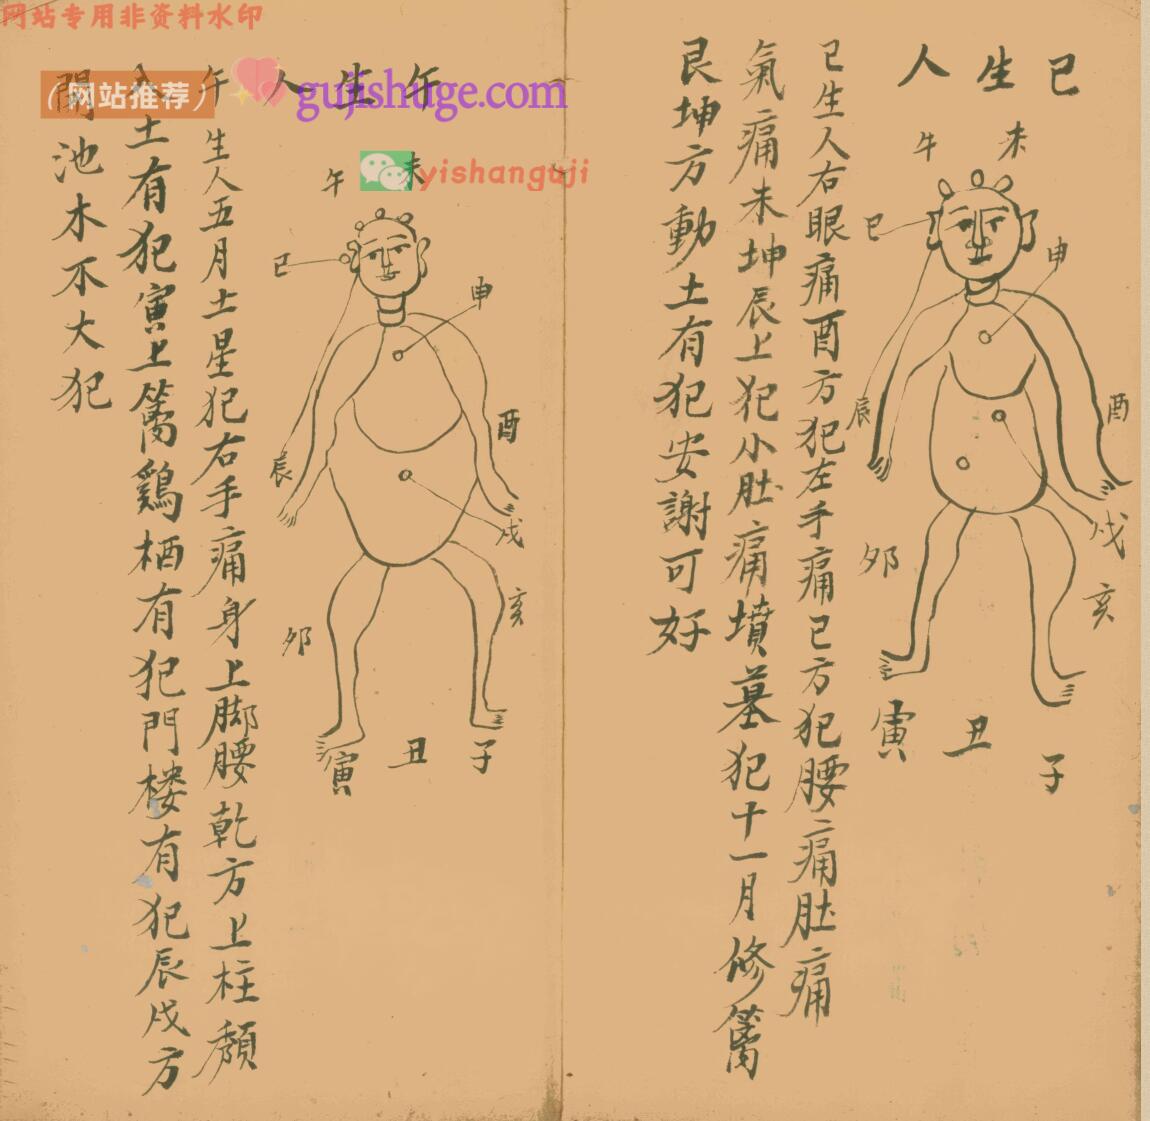 网站专用非资料水印
(网站推荐)
gujishuge.com
yishanguji
巳生人
巳生人右眼痛酉方犯左手痛巳方犯腰痛肚痛
氣痛未坤辰上犯小肚痛墳墓犯十一月修篱
艮坤方動土有犯安謝可好
未
午
巳
申
辰
酉
戌
卯
亥
寅
丑
子
午生人
午生人五月土星犯右手痛身上脚腰乾方上柱頽
土有犯寅上篱鷄栖有犯門楼有犯辰戌方
開池木不大犯
未
午
巳
申
酉
辰
戌
亥
卯
寅
丑
子